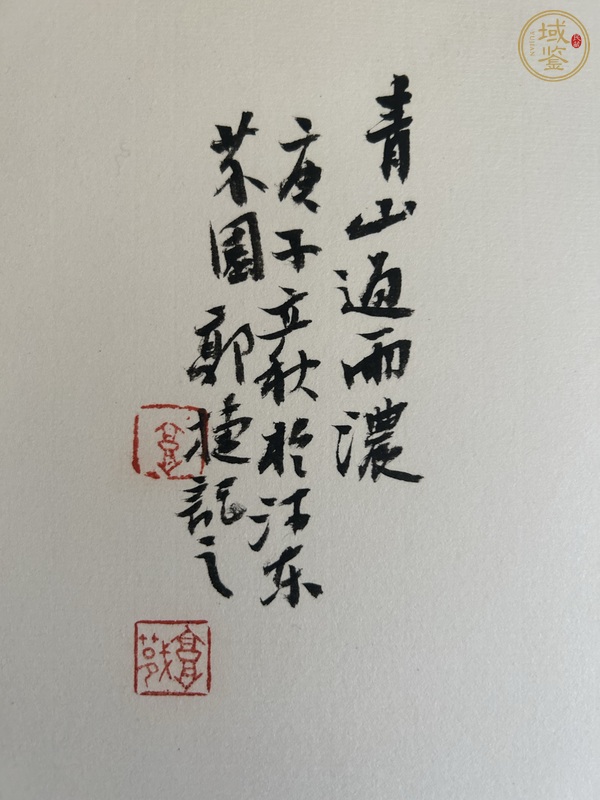 青山過雨濃
庚子立秋於东
園郭捷記之
域鉴